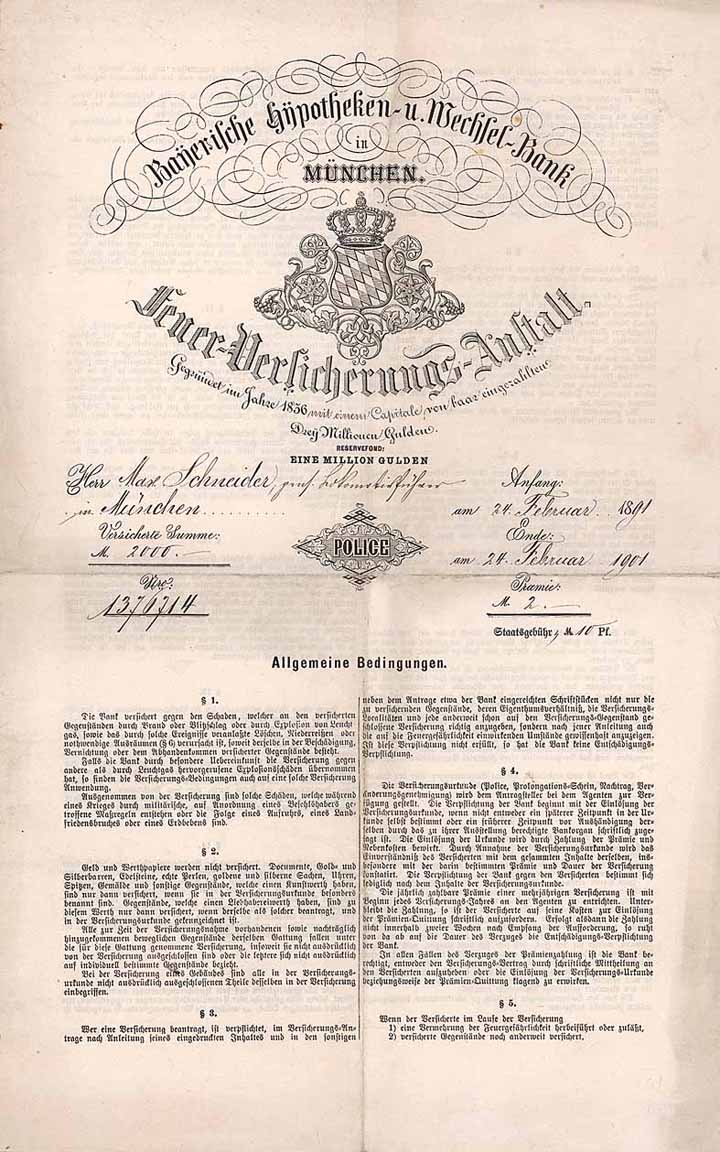 Bayerische Hypotheken- u. Wechsel-Bank
in
MÜNCHEN.
Feuer-Versicherungs-Anstalt.
Gegründet im Jahre 1836 mit einem Capitale von baar eingezahlten
Drey Millionen Gulden.
RESERVEFOND:
EINE MILLION GULDEN
Herr Max Schneider, Lokomotivführer
in München
Anfang:
am 24. Februar 1891
Versicherte Summe:
M. 2000.-
POLICE
Ende:
am 24. Februar 1901
Nro:
1376714
Præmie:
M. 2.-
Staatsgebühr, M. 10 Pf.
Allgemeine Bedingungen.
§ 1.
Die Bank versichert gegen den Schaden, welcher an den versicherten
Gegenständen durch Brand oder Blitzschlag oder durch Explosion von Leucht-
gas, sowie das durch solche Ereignisse veranlaßte Löschen, Niederreißen oder
nothwendige Ausräumen (§ 6) verursacht ist, soweit derselbe in der Beschädigung,
Vernichtung oder dem Abhandenkommen versicherter Gegenstände besteht.
Falls die Bank durch besondere Uebereinkunft die Versicherung gegen
andere als durch Leuchtgas hervorgerufene Explosionsschäden übernommen
hat, so finden die Versicherungs-Bedingungen auch auf eine solche Versicherung
Anwendung.
Ausgenommen von der Versicherung sind solche Schäden, welche während
eines Krieges durch militärische, auf Anordnung eines Befehlshabers ge-
troffene Maßregeln entstehen oder die Folge eines Aufruhrs, eines Land-
friedensbruches oder eines Erdbebens sind.
§ 2.
Geld und Werthpapiere werden nicht versichert. Documente, Gold- und
Silberbarren, Edelsteine, echte Perlen, goldene und silberne Sachen, Uhren,
Spitzen, Gemälde und sonstige Gegenstände, welche einen Kunstwerth haben,
sind nur dann versichert, wenn sie in der Versicherungsurkunde besonders
benannt sind. Gegenstände, welche einen Liebhaberwerth haben, sind zu
diesem Werth nur dann versichert, wenn derselbe als solcher beantragt, und
in der Versicherungsurkunde gekennzeichnet ist.
Alle zur Zeit der Versicherungsnahme vorhandenen sowie nachträglich
hinzugekommenen beweglichen Gegenstände derselben Gattung fallen unter
die für diese Gattung genommene Versicherung, insoweit sie nicht ausdrücklich
von der Versicherung ausgeschlossen sind oder die letztere sich nicht ausdrücklich
auf individuell bestimmte Gegenstände bezieht.
Bei der Versicherung eines Gebäudes sind alle in der Versicherungs-
urkunde nicht ausdrücklich ausgeschlossenen Theile desselben in der Versicherung
einbegriffen.
§ 3.
Wer eine Versicherung beantragt, ist verpflichtet, im Versicherungs-An-
trage nach Anleitung seines eingedruckten Inhaltes und in den sonstigen
neben dem Antrage etwa der Bank eingereichten Schriftstücken nicht nur die
zu versichernden Gegenstände, deren Eigenthumsverhältniß, die Versicherungs-
Localitäten und jede anderweit schon auf den Versicherungs-Gegenstand ge-
schlossene Versicherung richtig anzugeben, sondern nach jener Anleitung auch
die auf die Feuergefährlichkeit einwirkenden Umstände gewissenhaft anzuzeigen.
Ist diese Verpflichtung nicht erfüllt, so hat die Bank keine Entschädigungs-
Verpflichtung.
§ 4.
Die Versicherungsurkunde (Police, Prolongations-Schein, Nachtrag, Ver-
änderungsgenehmigung) wird dem Antragsteller bei dem Agenten zur Ver-
fügung gestellt. Die Verpflichtung der Bank beginnt mit der Einlösung der
Versicherungsurkunde, wenn nicht entweder ein späterer Zeitpunkt in der Ur-
kunde selbst bestimmt oder ein früherer Zeitpunkt vor Aushändigung der-
selben durch das zu ihrer Ausstellung berechtigte Bankorgan schriftlich zuge-
sagt ist. Die Einlösung der Urkunde wird durch Zahlung der Prämie und
Nebenkosten bewirkt. Durch Annahme der Versicherungsurkunde wird das
Einverständniß des Versicherten mit dem gesammten Inhalte derselben, ins-
besondere mit der darin bestimmten Prämie und Dauer der Versicherung
constatirt. Die Verpflichtung der Bank gegen den Versicherten bestimmt sich
lediglich nach dem Inhalte der Versicherungsurkunde.
Die jährlich zahlbare Prämie einer mehrjährigen Versicherung ist mit
Beginn jedes Versicherungs-Jahres an den Agenten zu entrichten. Unter-
bleibt die Zahlung, so ist der Versicherte auf seine Kosten zur Einlösung
der Prämien-Quittung schriftlich aufzufordern. Erfolgt alsdann die Zahlung
nicht innerhalb zweier Wochen nach Empfang der Aufforderung, so ruht
von da ab auf die Dauer des Verzuges die Entschädigungs-Verpflichtung
der Bank.
In allen Fällen des Verzuges der Prämienzahlung ist die Bank be-
rechtigt, entweder den Versicherungs-Vertrag durch schriftliche Mittheilung an
den Versicherten aufzuheben oder die Einlösung der Versicherungs-Urkunde
beziehungsweise der Prämien-Quittung klagend zu erwirken.
§ 5.
Wenn der Versicherte im Laufe der Versicherung
1) eine Vermehrung der Feuergefährlichkeit herbeiführt oder zuläßt,
2) versicherte Gegenstände noch anderweit versichert.